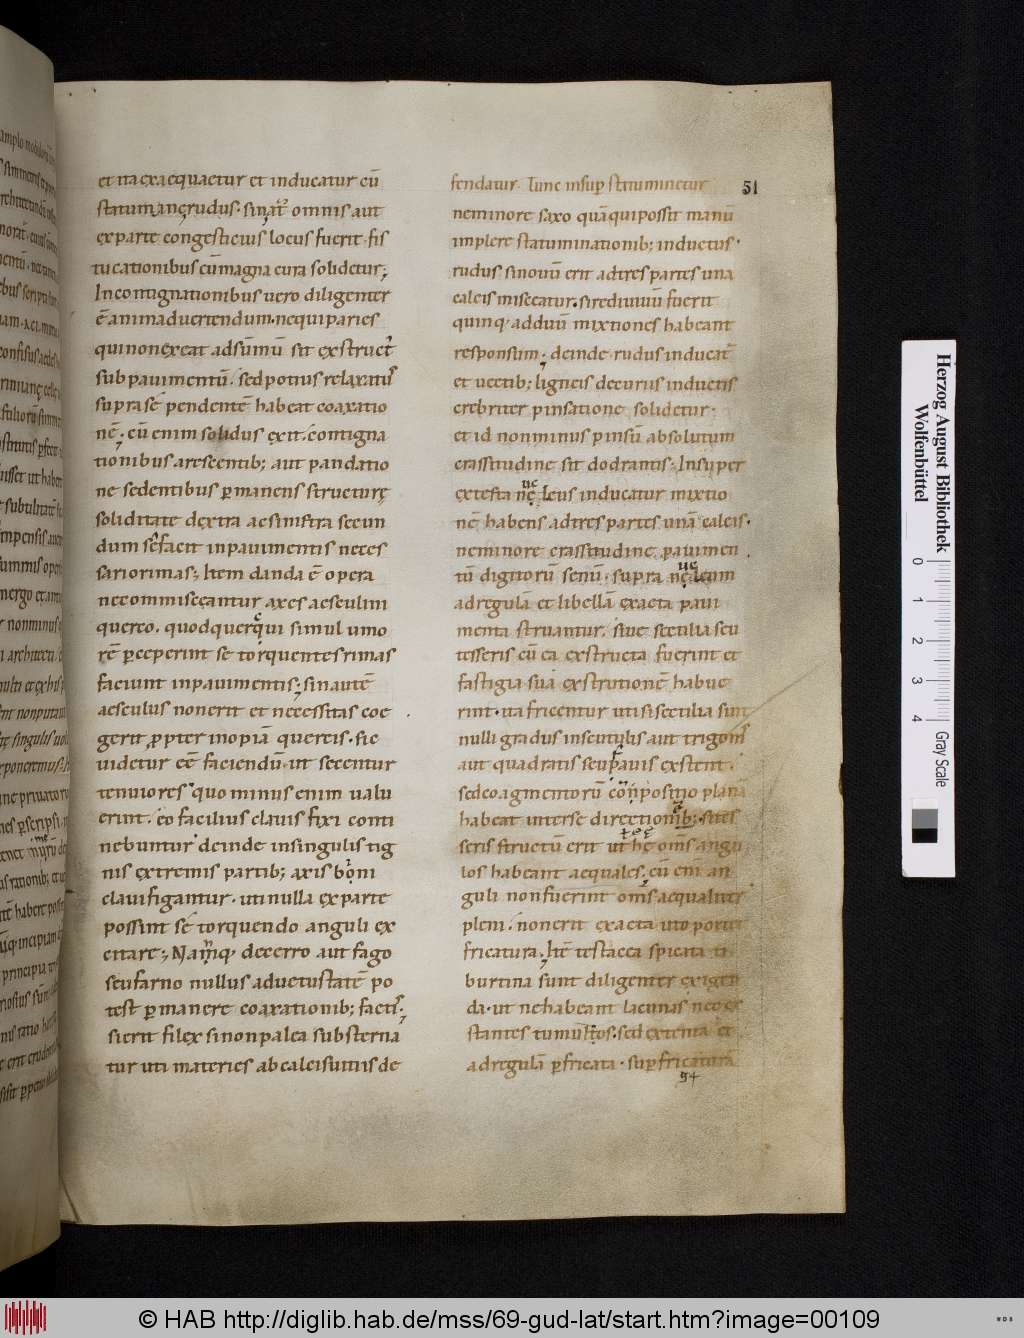 et ita exaequaetur et inducatur cū
statumin ançrudus. sinaūt omnis aut
exparte congesticius locus fuerit fis
tucationibus cūmagna cura solidetur;
In contignationibus uero diligenter
ē animaduertendum. nequiparies
quinonexeat adsūmū sit exstruct
subpauimentū. sedpotius relaxatus
suprasē pendentē habeat coaxatio
nē. cū enim solidus exit. contigna
tionibus arescentib; aut pandatio
ne sedentibus p̄manens structurę
soliditate dextra acsinistra secun
dum sēfacit inpauimentis neces
sariorimas; Item danda ē opera
necommisceantur axes aesculini
querco. quodquerqui simul umo
rē p̄ceperint se torquentesrimas
faciunt inpauimentis; sinautē
aesculus nonerit et necessitas coe
gerit ꝓpter inopiā quercis. sic
uidetur eē faciendū. ut secentur
tenuiores quominus enim ualu
erint. eo facilius clauis fixi conti
nebuntur deinde insingulis tig
nis extremis partib; axis boni
clauifigantur. utinulla exparte
possint sē torquendo anguli ex
citare; Namq. decerro aut fago
seufarno nullus aduetustatē po
test p̄manere coaxationib; factis.
sierit filex sinonpalea substerna
tur uti materies abcalcisuitiis de
fendatur. Tunc insup̄ statuminetur
51
neminore saxo quāquipossit manū
implere statuminationib; inductis.
rudus sinouū erit adtrespartes una
calcis misceatur. sirediuiuū fuerit
quinq. adduū mixtiones habeant
responsum. deinde rudus inducat̄
et uectib; ligneis decuriis inductis
crebriter pinsatione solidetur.
et id nonminus pinsū absolutum
crassitudine sit dodrantis. Insuper
uc
extesta nęleus inducatur mixtio
nē habens adtres partes unā calcis.
neminore crassitudine pauimen
uc
tū digitorū senū. supra nęleum
adregulā et libellā exacta paui
menta struantur. siue sectilia seu
tesseris cū ea exstructa fuerint et
fastigia sua exstrutionē habue
rint. ita fricentur utisisectilia sunt
nulli gradus inscutulis aut trigonis
aut quadratis seufauis exstent.
sedcoagmentorū conpositio planā
habeat interse directionib; sites
seris structū erit ut hę om̄s angu
los habeant aequales, cū enī an
guli nonfuerint om̄s aequaliter
pleni. nonerit exacta utoportet
fricatura. Itē testacea spicata ti
burtina sunt diligenter exigen
da. ut nehabeant lacunas nec ex
stantes tumulos. sed extenta et
adregulā p̄fricata. sup̄fricatura
54
Herzog August Bibliothek
Wolfenbüttel
0 1 2 3 4
Gray Scale
© HAB http://diglib.hab.de/mss/69-gud-lat/start.htm?image=00109